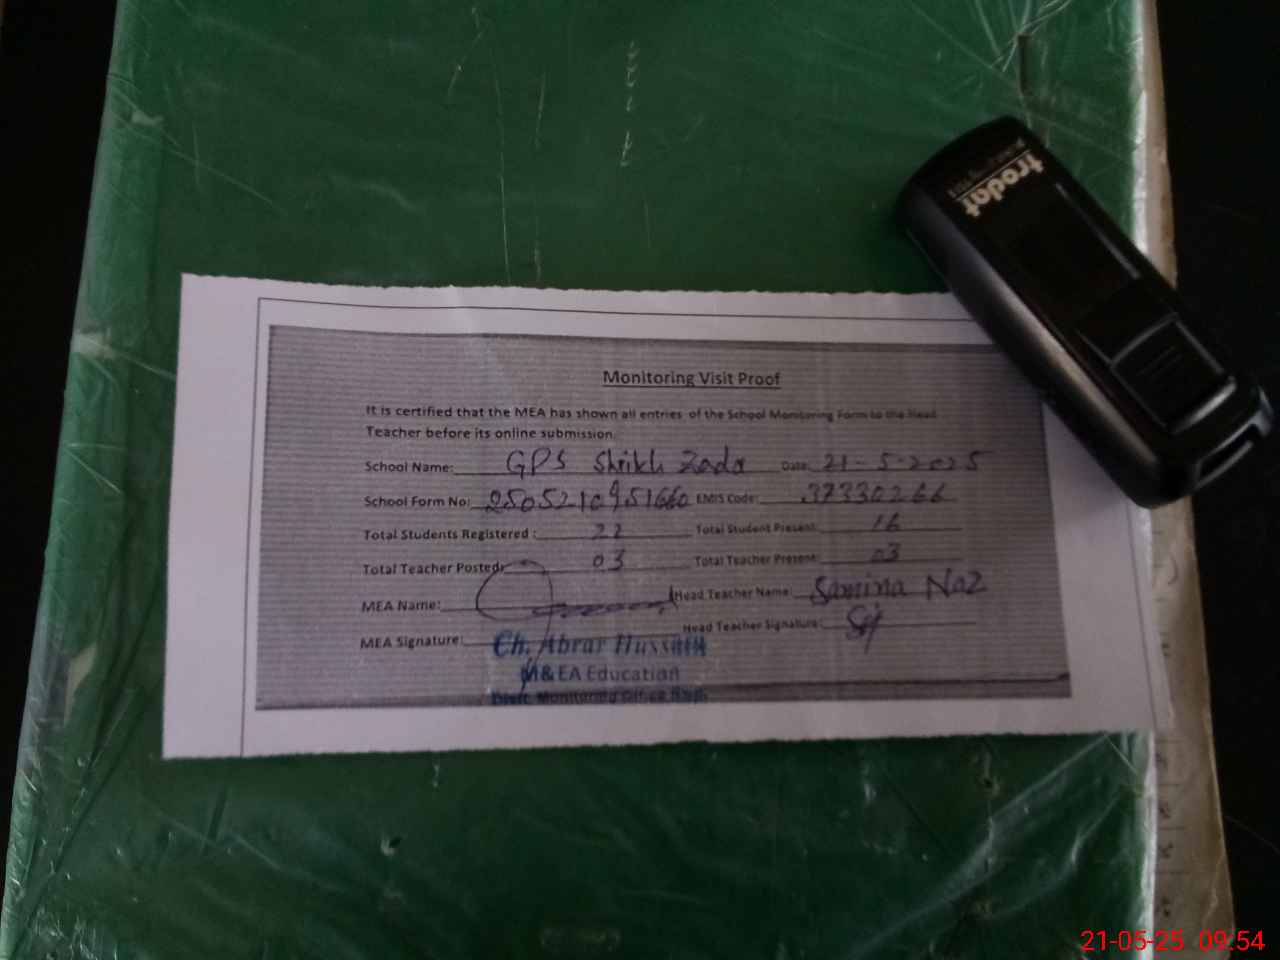 trodat
Monitoring Visit Proof
It is certified that the MEA has shown all entries of the School Monitoring Form to the Head
Teacher before its online submission.
School Name: GPS Sheikh Zada Date: 21-5-2025
School Form No: 2505210951660 EMIS Code: 37330266
Total Students Registered : 22 Total Student Present: 16
Total Teacher Posted: 03 Total Teacher Present: 03
MEA Name: Head Teacher Name: Samina Naz
MEA Signature: Head Teacher Signature:
Ch. Abrar Hussain
M&EA Education
Distt. Monitoring Office
21-05-25 09:54